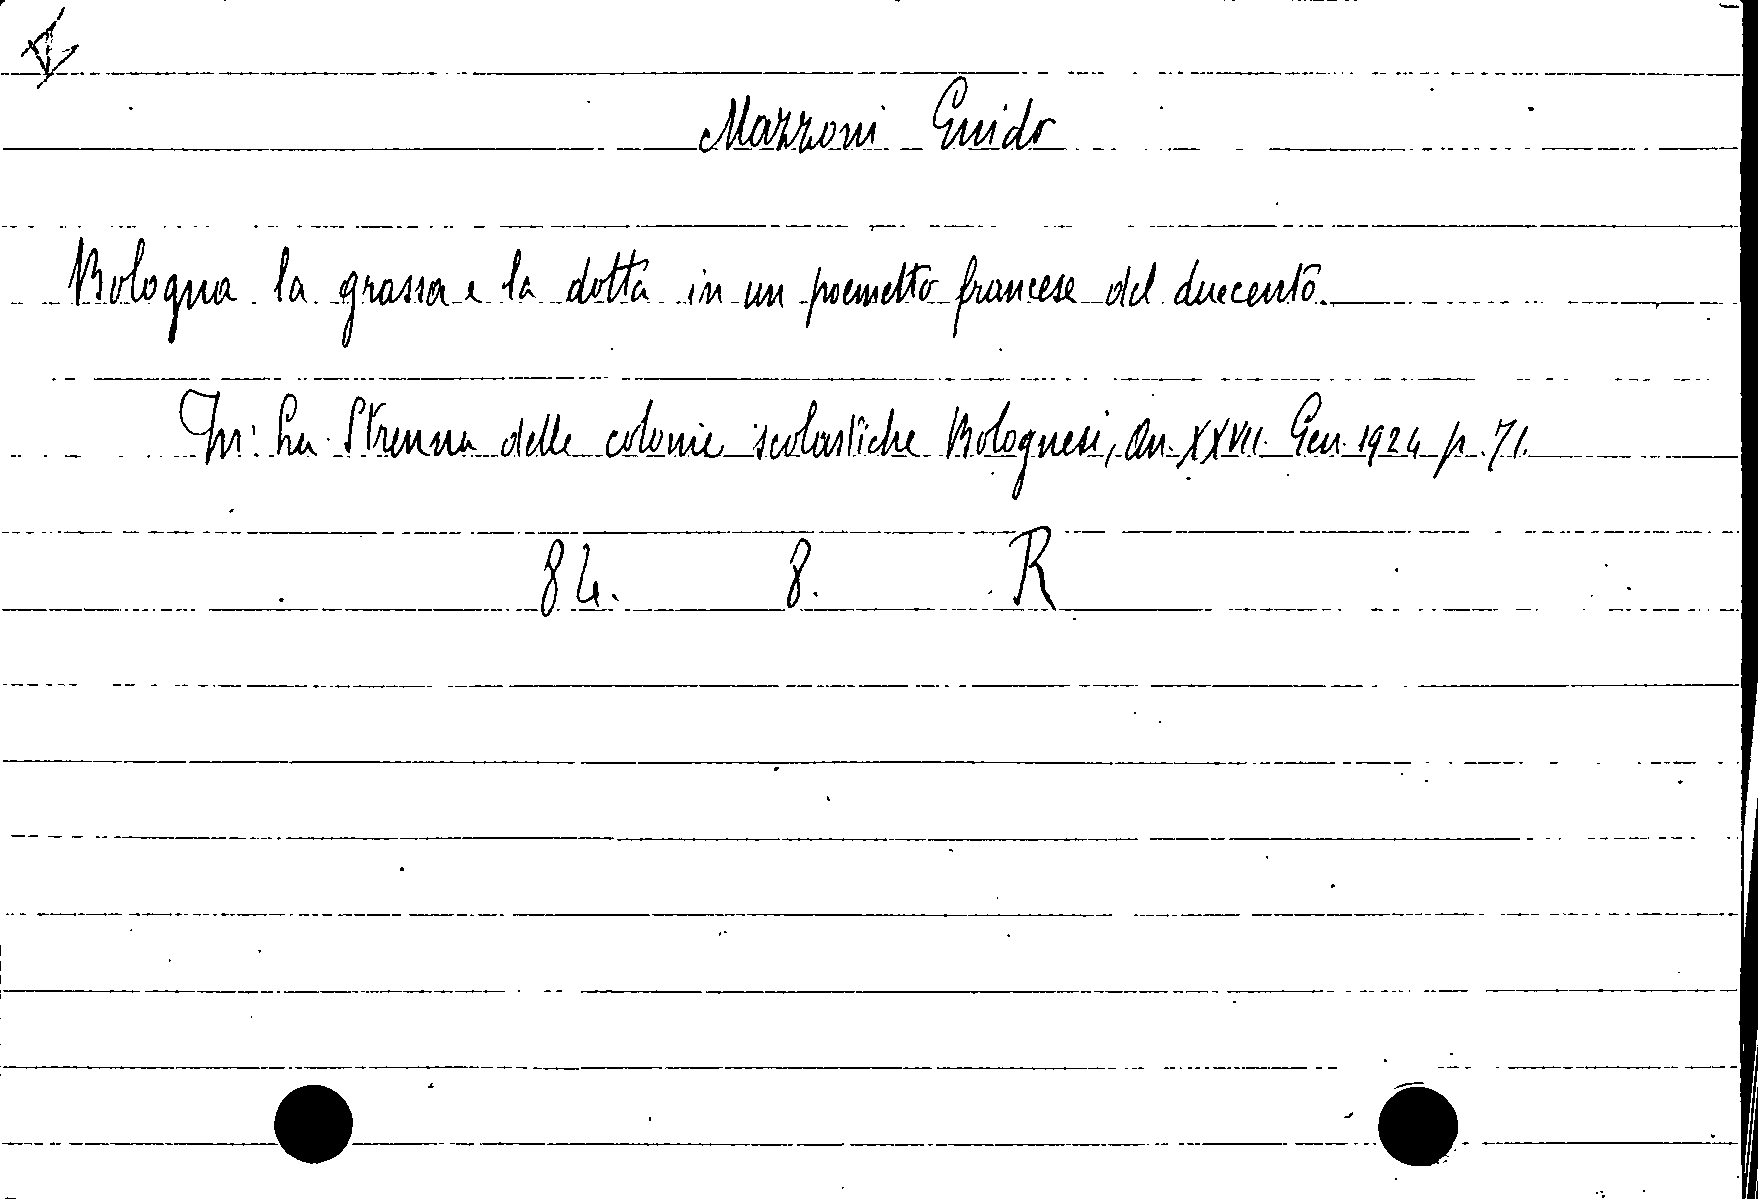 Mazzoni Guido
Bologna la grassa e la dotta in un poemetto francese del duecento.
In: La Strenna delle colonie scolastiche Bolognesi, An. XXVII. Gen. 1924 p. 71.
84. 8. R